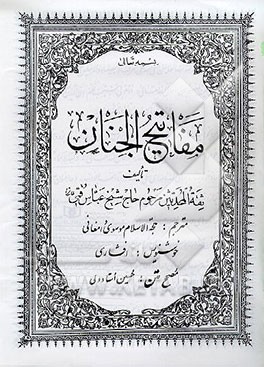 بسمه تعالی
مفاتیح الجنان
تألیف
ثقة المحدثین مرحوم حاج شیخ عباس قمی
مترجم : حجة الاسلام موسوی دامغانی
خوشنویس : افشاری
مصحح متن : حسین استادولی